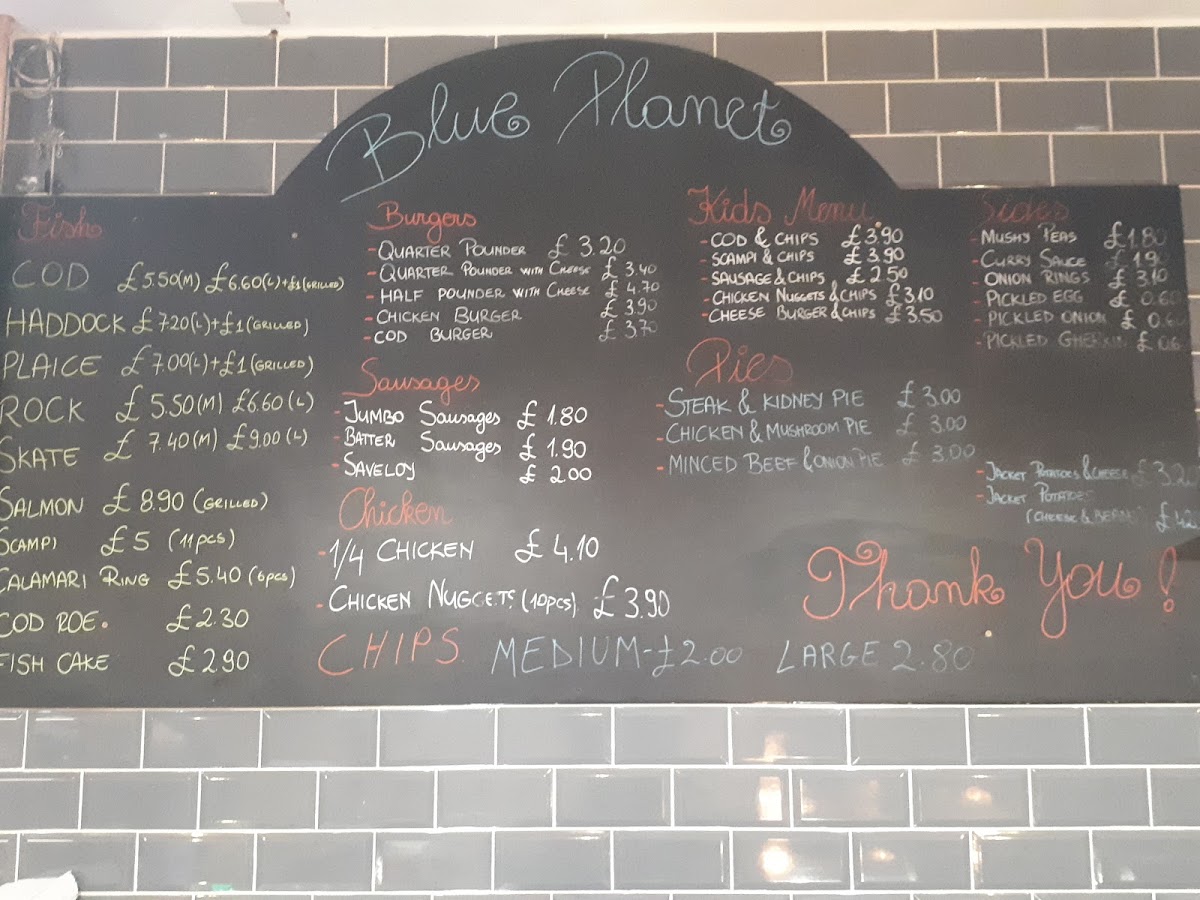 Blue Planet
Fish
COD £5.50(M) £6.60(L)+£1(GRILLED)
HADDOCK £7.20(L)+£1(GRILLED)
PLAICE £7.00(L)+£1(GRILLED)
ROCK £5.50(M) £6.60(L)
SKATE £7.40(M) £9.00(L)
SALMON £8.90(GRILLED)
SCAMPI £5 (11pcs)
CALAMARI RING £5.40(6pcs)
COD ROE. £2.30
FISH CAKE £2.90
Burgers
-QUARTER POUNDER £3.20
-QUARTER POUNDER WITH CHEESE £3.40
-HALF POUNDER WITH CHEESE £4.70
-CHICKEN BURGER £3.90
-COD BURGER £3.70
Sausages
-JUMBO SAUSAGES £1.80
-BATTER SAUSAGES £1.90
-SAVELOY £2.00
Chicken
-1/4 CHICKEN £4.10
-CHICKEN NUGGETS (10pcs) £3.90
CHIPS MEDIUM-£2.00 LARGE 2.80
Kids Menu
-COD & CHIPS £3.90
-SCAMPI & CHIPS £3.90
-SAUSAGE & CHIPS £2.50
-CHICKEN NUGGETS & CHIPS £3.10
-CHEESE BURGER & CHIPS £3.50
Pies
-STEAK & KIDNEY PIE £3.00
-CHICKEN & MUSHROOM PIE £3.00
-MINCED BEEF & ONION PIE £3.00
Sides
-MUSHY PEAS £1.80
-CURRY SAUCE £1.90
-ONION RINGS £3.10
-PICKLED EGG £0.60
-PICKLED ONION £0.60
-PICKLED GHERKIN £0.6
-JACKET POTATOES & CHEESE
-JACKET POTATOES
(CHEESE & BEAN)
Thank You!